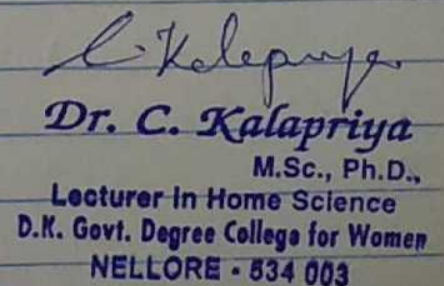 C. Kalapriya
Dr. C. Kalapriya
M.Sc., Ph.D.,
Lecturer in Home Science
D.K. Govt. Degree College for Women
NELLORE - 534 003